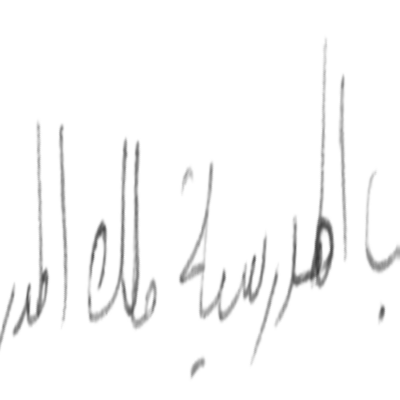 ب المدرسية ملك المدر